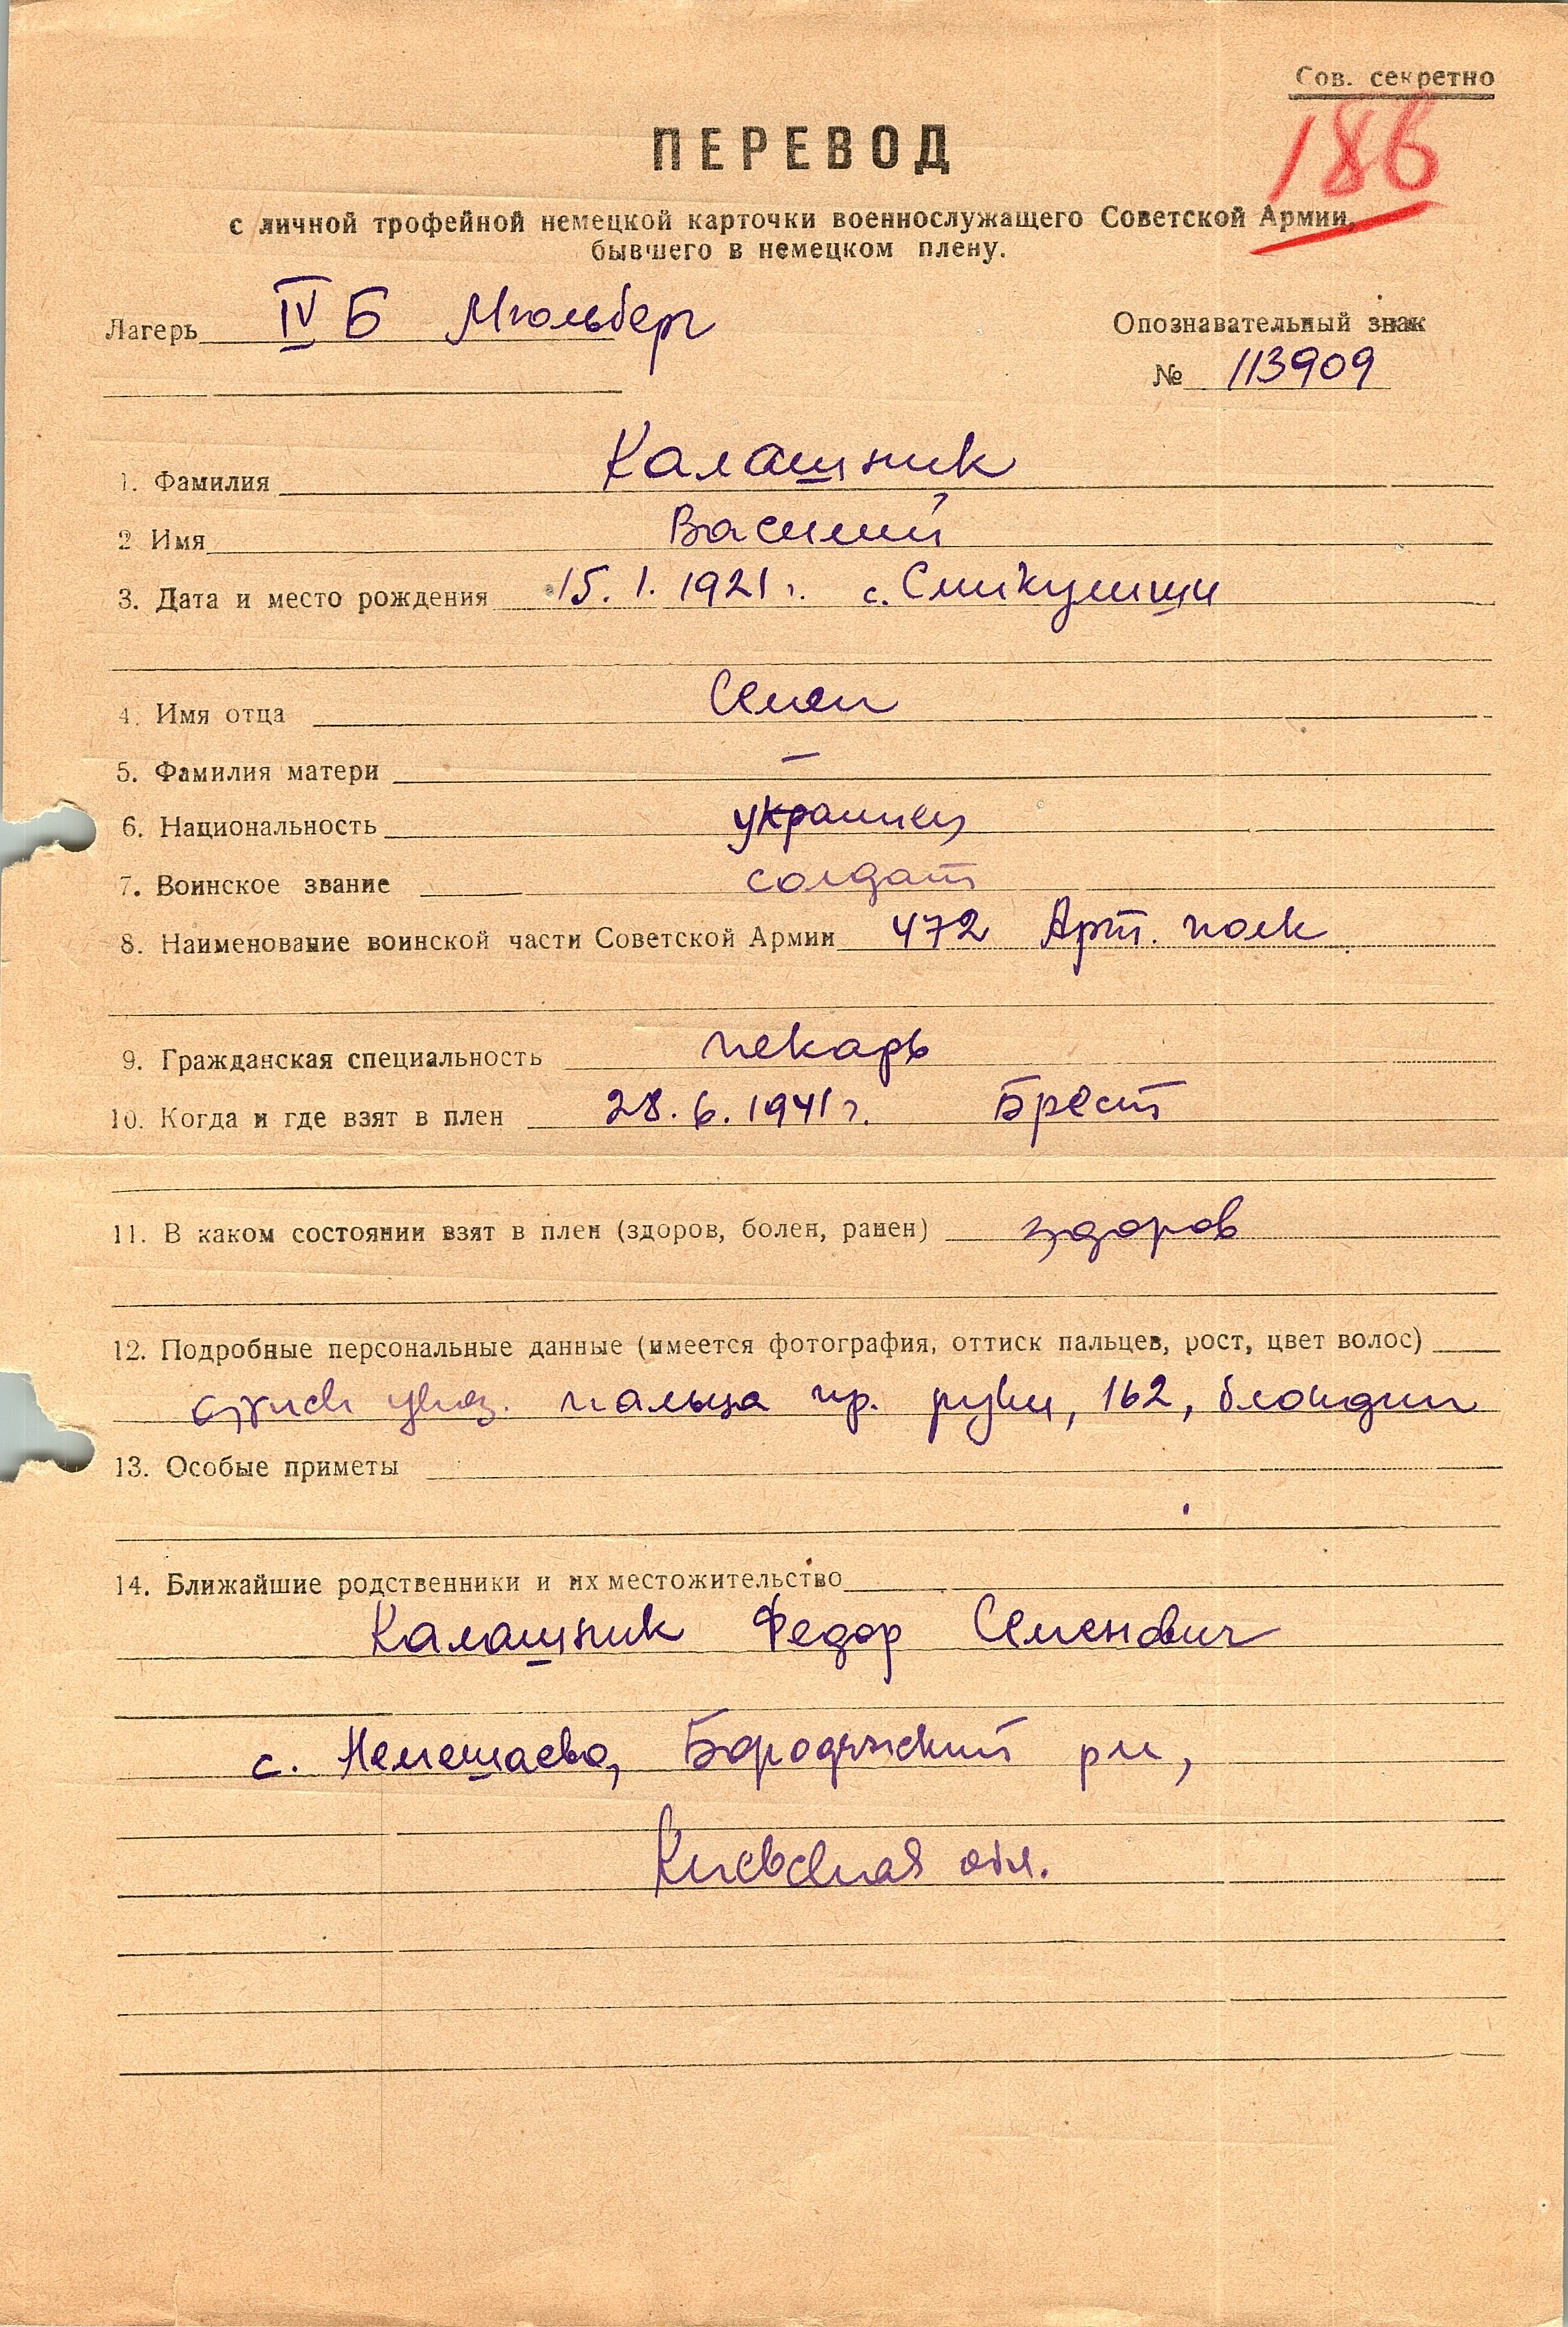 Сов. секретно
186
ПЕРЕВОД
с личной трофейной немецкой карточки военнослужащего Советской Армии,
бывшего в немецком плену.
Лагерь IV Б Мюльберг
Опознавательный знак
№ 113909
1. Фамилия Калашник
2 Имя Василий
3. Дата и место рождения 15.1.1921 г. с.
4. Имя отца Семен
5. Фамилия матери –
6. Национальность украинец
7. Воинское звание солдат
8. Наименование воинской части Советской Армии 472 Арт. полк
9. Гражданская специальность пекарь
10. Когда и где взят в плен 28.6.1941 г. Брест
11. В каком состоянии взят в плен (здоров, болен, ранен) здоров
12. Подробные персональные данные (имеется фотография, оттиск пальцев, рост, цвет волос)
указ. пальца пр. руки, 162, блондин
13. Особые приметы
14. Ближайшие родственники и их местожительство
Калашник Федор Семенович
с. Немешаево, Бородянский рн,
Киевская обл.